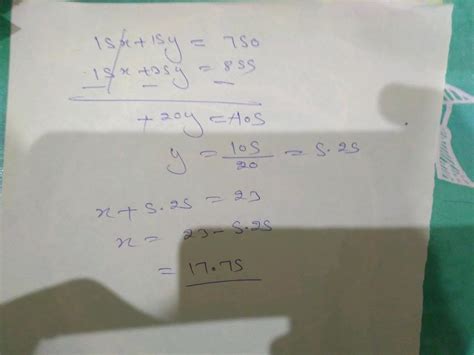 15x+15y = 750
15x+35y = 855
+20y=+105
y = 105/20 = 5.25
x+5.25 = 23
x = 23-5.25
= 17.75